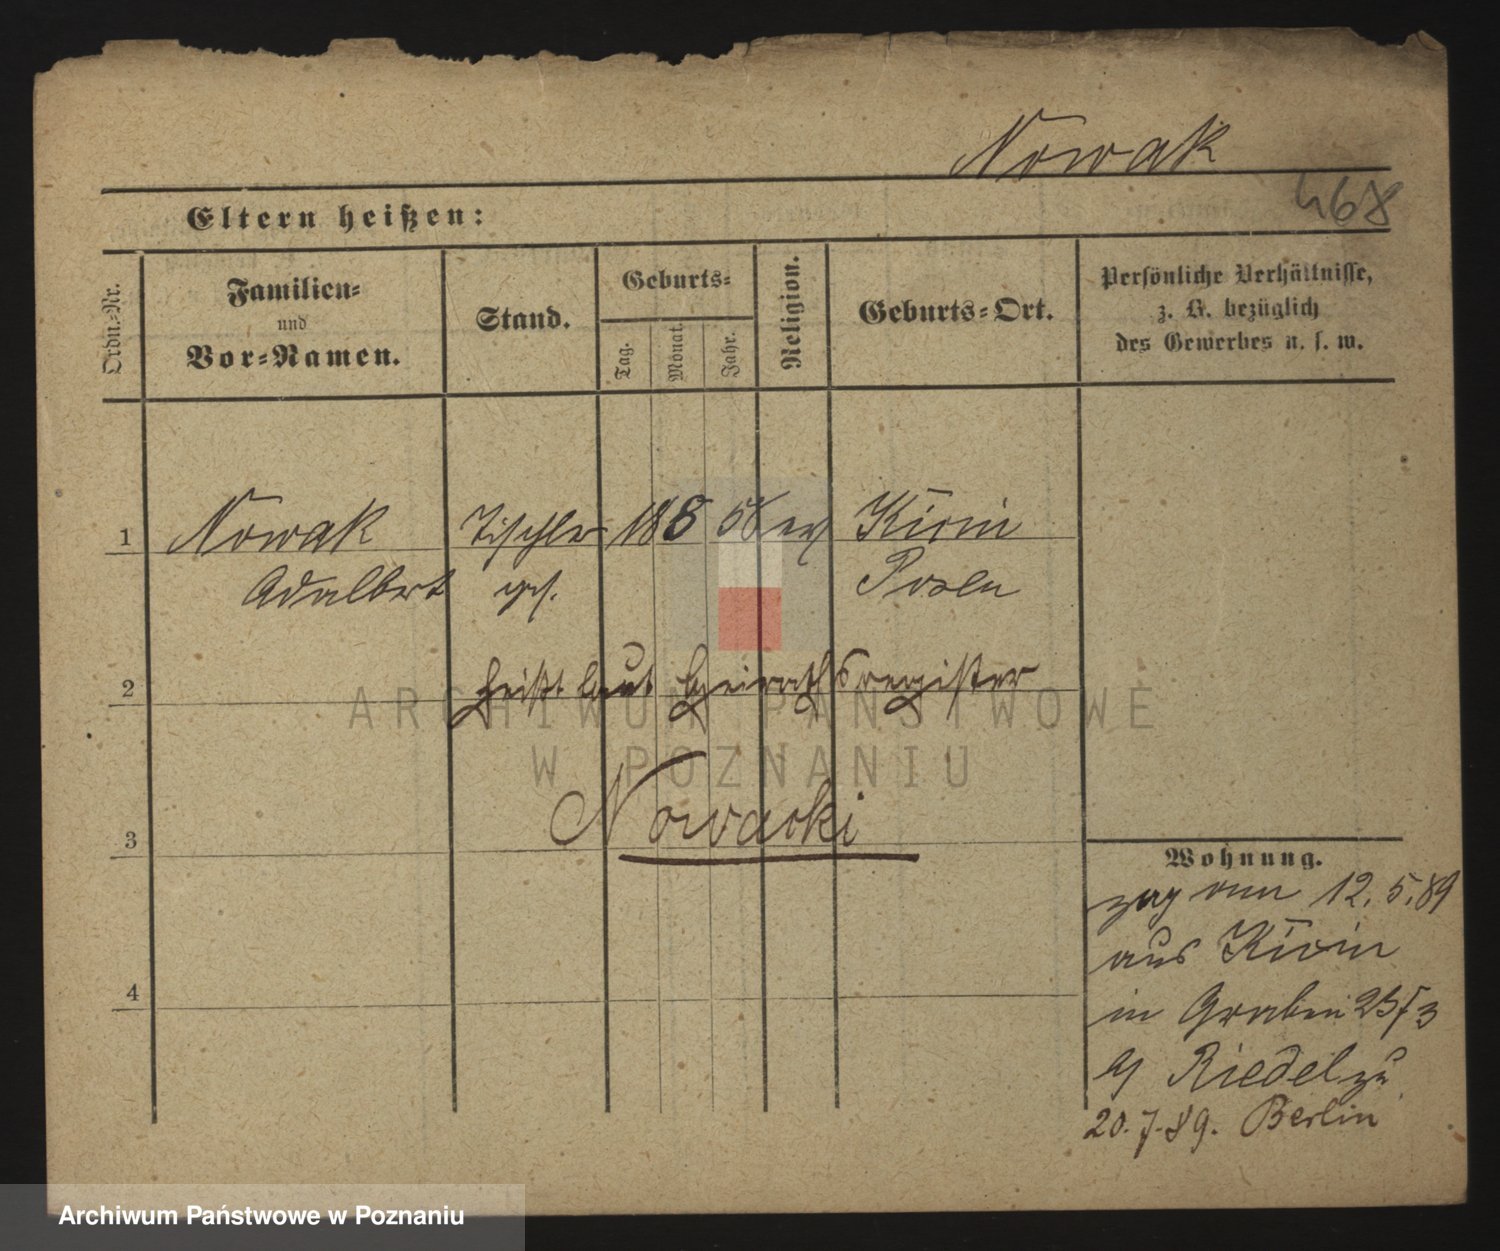 Nowak
468
Eltern heißen:
Ordn.-Nr.
Familien-
und
Vor-Namen.
Stand.
Geburts-
Tag.
Monat.
Jahr.
Religion.
Geburts-Ort.
Persönliche Verhältnisse,
z. B. bezüglich
des Gewerbes u. s. w.
1 Nowak Tischler 18 8 58 Kirin
Adalbert ges. Posen
2 heißt laut Heirathsregister
Nowacki
3
4
Wohnung.
zug vom 12.5.89
aus Kirin
in Graben 25/3
Riedel zu
20.7.89. Berlin
ARCHIWUM PAŃSTWOWE
W POZNANIU
Archiwum Państwowe w Poznaniu